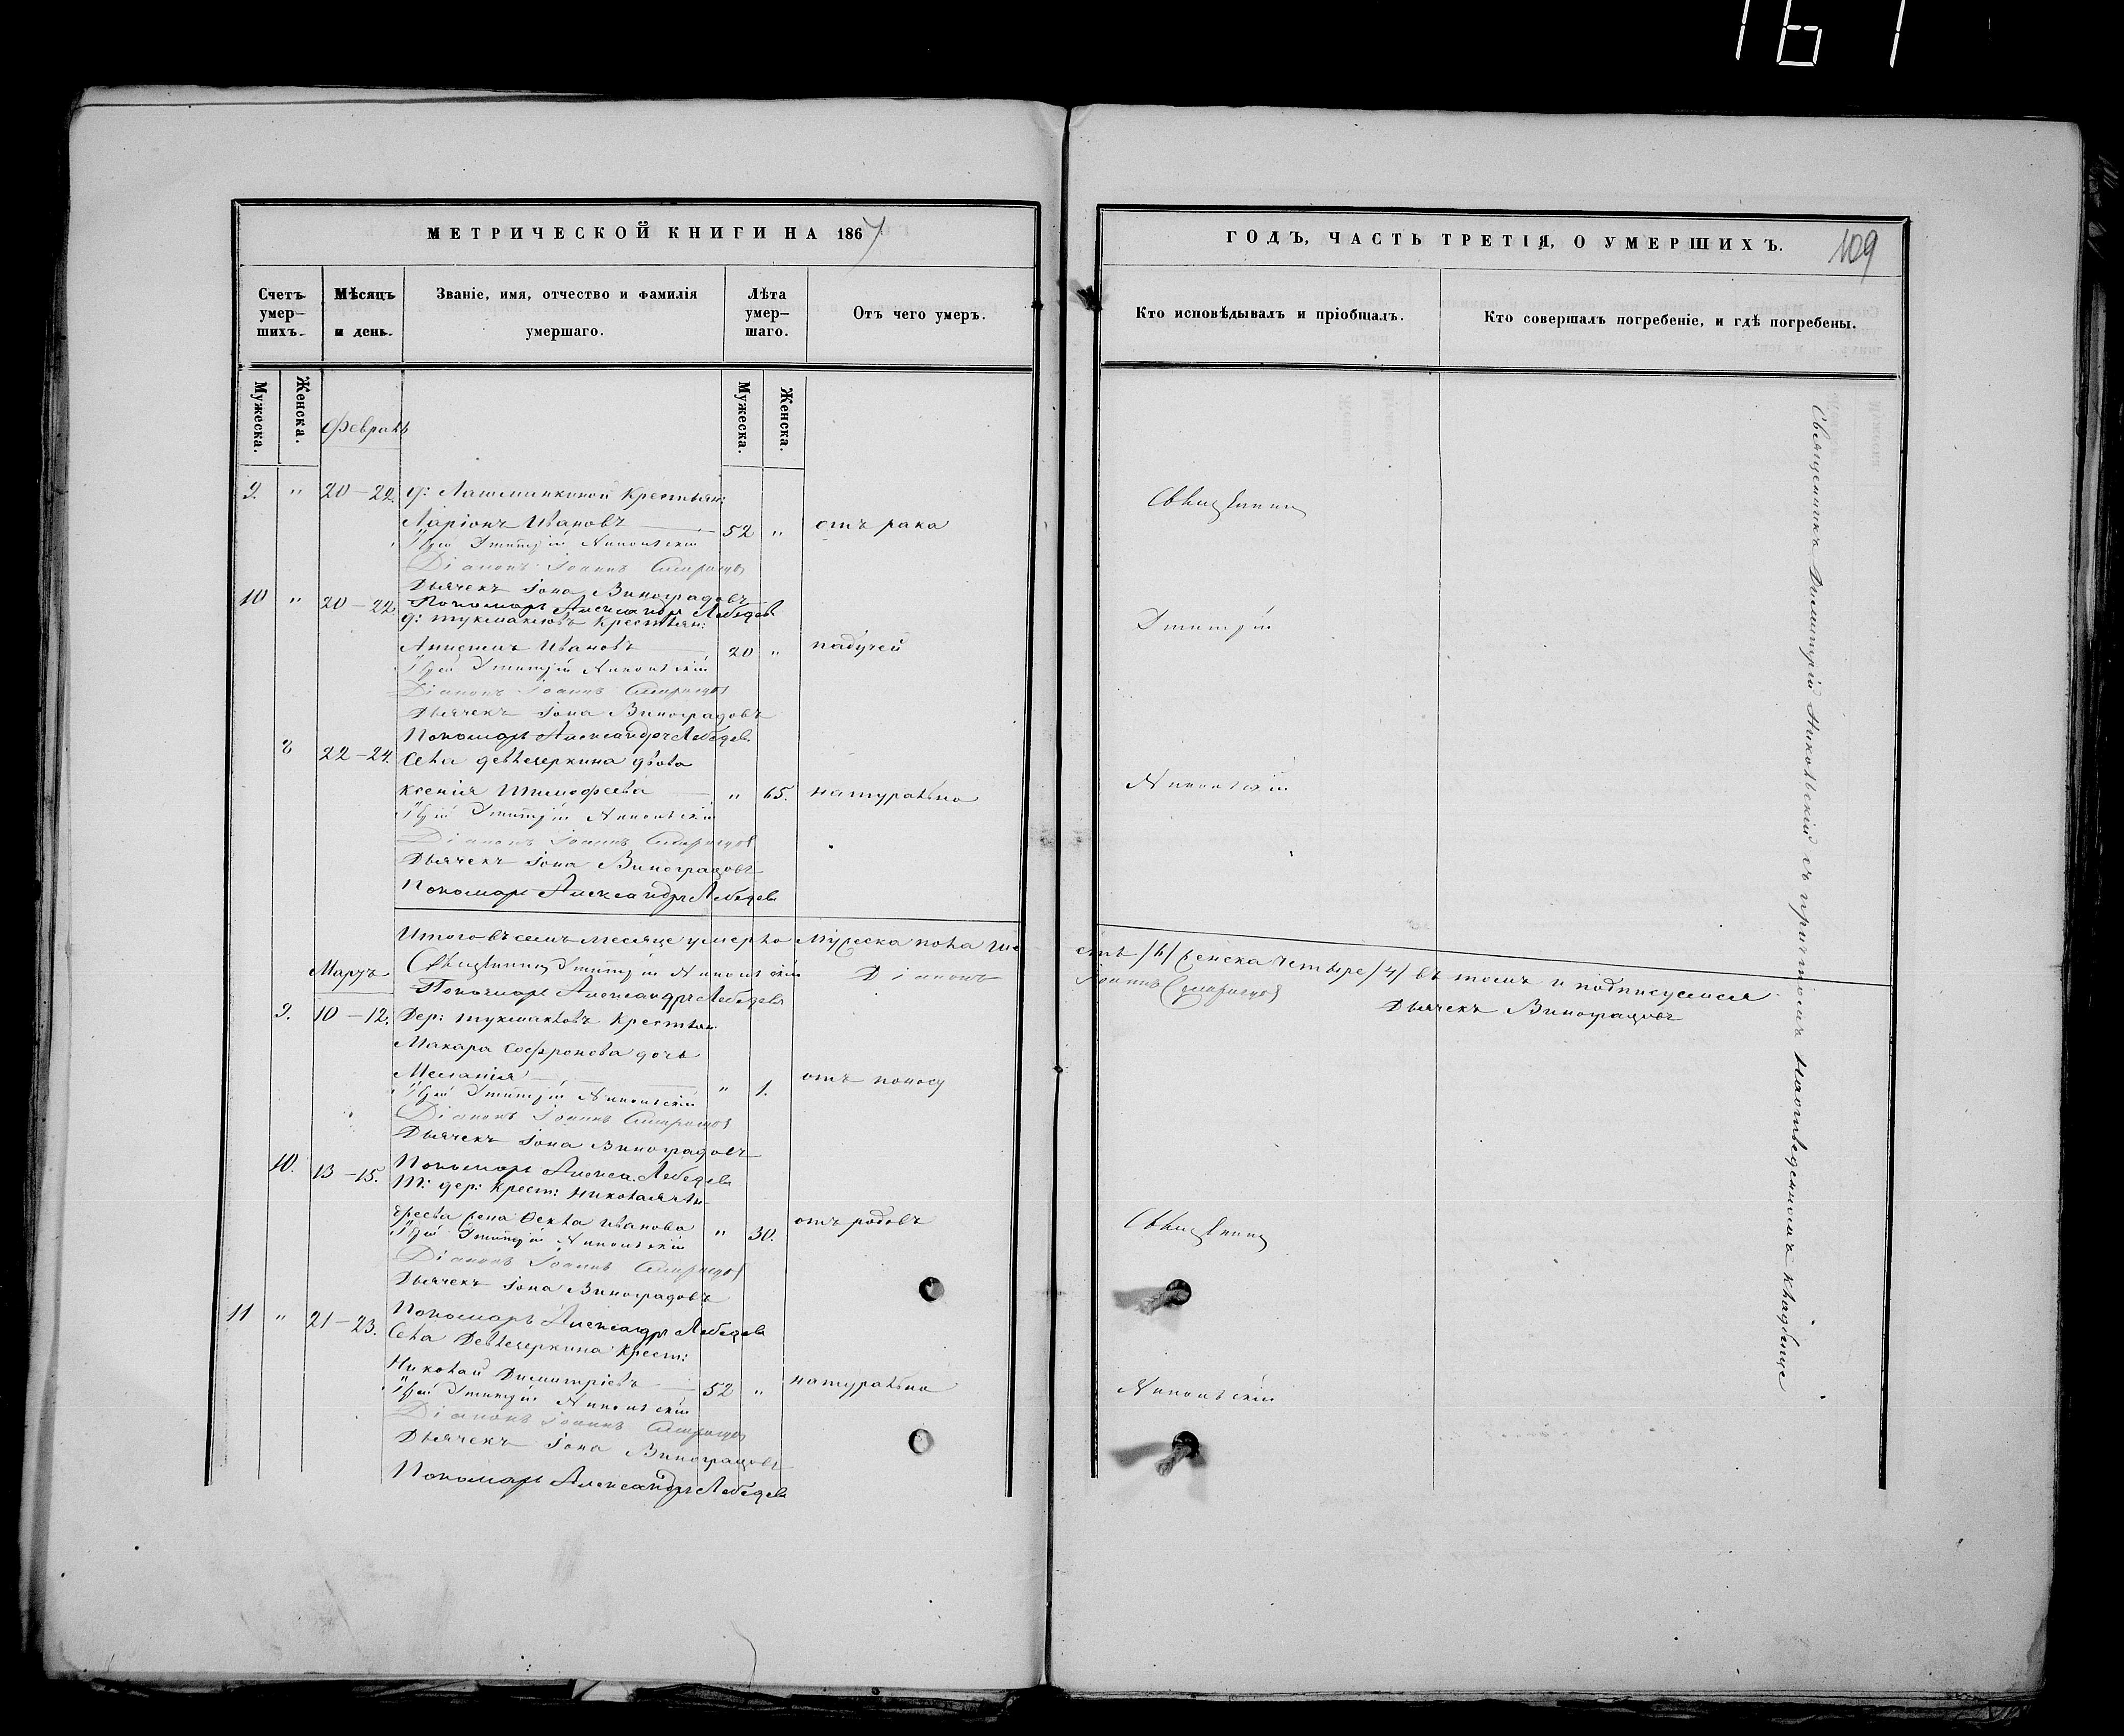 161
МЕТРИЧЕСКОЙ КНИГИ НА 1867
ГОДЪ, ЧАСТЬ ТРЕТІЯ, О УМЕРШИХЪ.
109
Счетъ умер-шихъ.
Мѣсяцъ и день.
Званіе, имя, отчество и фамилія умершаго.
Лѣта умер-шаго.
Отъ чего умеръ.
Кто исповѣдывалъ и пріобщалъ.
Кто совершалъ погребеніе, и гдѣ погребены.
Мужеска.
Женска.
Мужеска.
Женска.
Февраль
9. " 20-22. д: Крестьян:
Ларіонъ Ивановъ 52 " отъ рака
Священникъ
Іерей Димитрій
Діаконъ Іоаннъ
Дьячекъ Іона Виноградовъ
Пономарь Александръ Лебедевъ
10 " 20-22 д: Тукмаковъ Крестьян:
Анисимъ Ивановъ 20 " падучей
Димитрій
Іерей Димитрій
Діаконъ Іоаннъ
Дьячекъ Іона Виноградовъ
Пономарь Александръ Лебедевъ
8 22-24. Села Девлечеркина вдова
Ксенія Тимофеева " 65. натурально
Іерей Димитрій
Діаконъ Іоаннъ
Дьячекъ Іона Виноградовъ
Пономарь Александръ Лебедевъ
Итого въ семъ месяце умерло мужеска пола ше
сть /6/ женска четыре /4/ въ томъ и подписуемся
Священникъ Димитрій
Діаконъ
Іоаннъ
Дьячекъ Виноградовъ
Мартъ
Пономарь Александръ Лебедевъ
9. 10-12. Дер: Тукмаковъ Крестьян.
Макара Софронова дочь
Меланія " 1. отъ поносу
Іерей Димитрій
Діаконъ Іоаннъ
Дьячекъ Іона Виноградовъ
Пономарь Алекса. Лебедевъ
10. 13-15. Т: дер: Крест: Николая Ан-
жена Фекла Иванова " 30. отъ родовъ
Священникъ
Іерей Димитрій
Діаконъ Іоаннъ
Дьячекъ Іона Виноградовъ
Пономарь Александръ Лебедевъ
11 " 21-23. Села Девлечеркина Крест:
Николай Димитріевъ 52 " натурально
Іерей Димитрій
Діаконъ Іоаннъ
Дьячекъ Іона Виноградовъ
Пономарь Александръ Лебедевъ
Священникъ Димитрій Никольскій съ причтомъ На отведенномъ кладбище